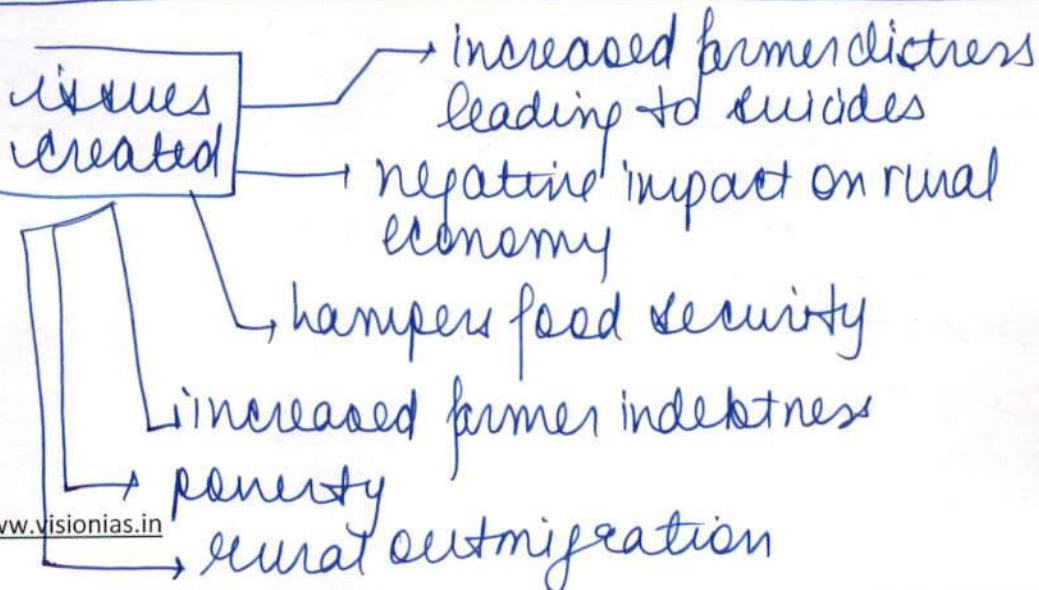 issues
created
increased farmer distress
leading to suicides
negative impact on rural
economy
hampers food security
increased farmer indebtness
poverty
www.visionias.in
rural outmigration